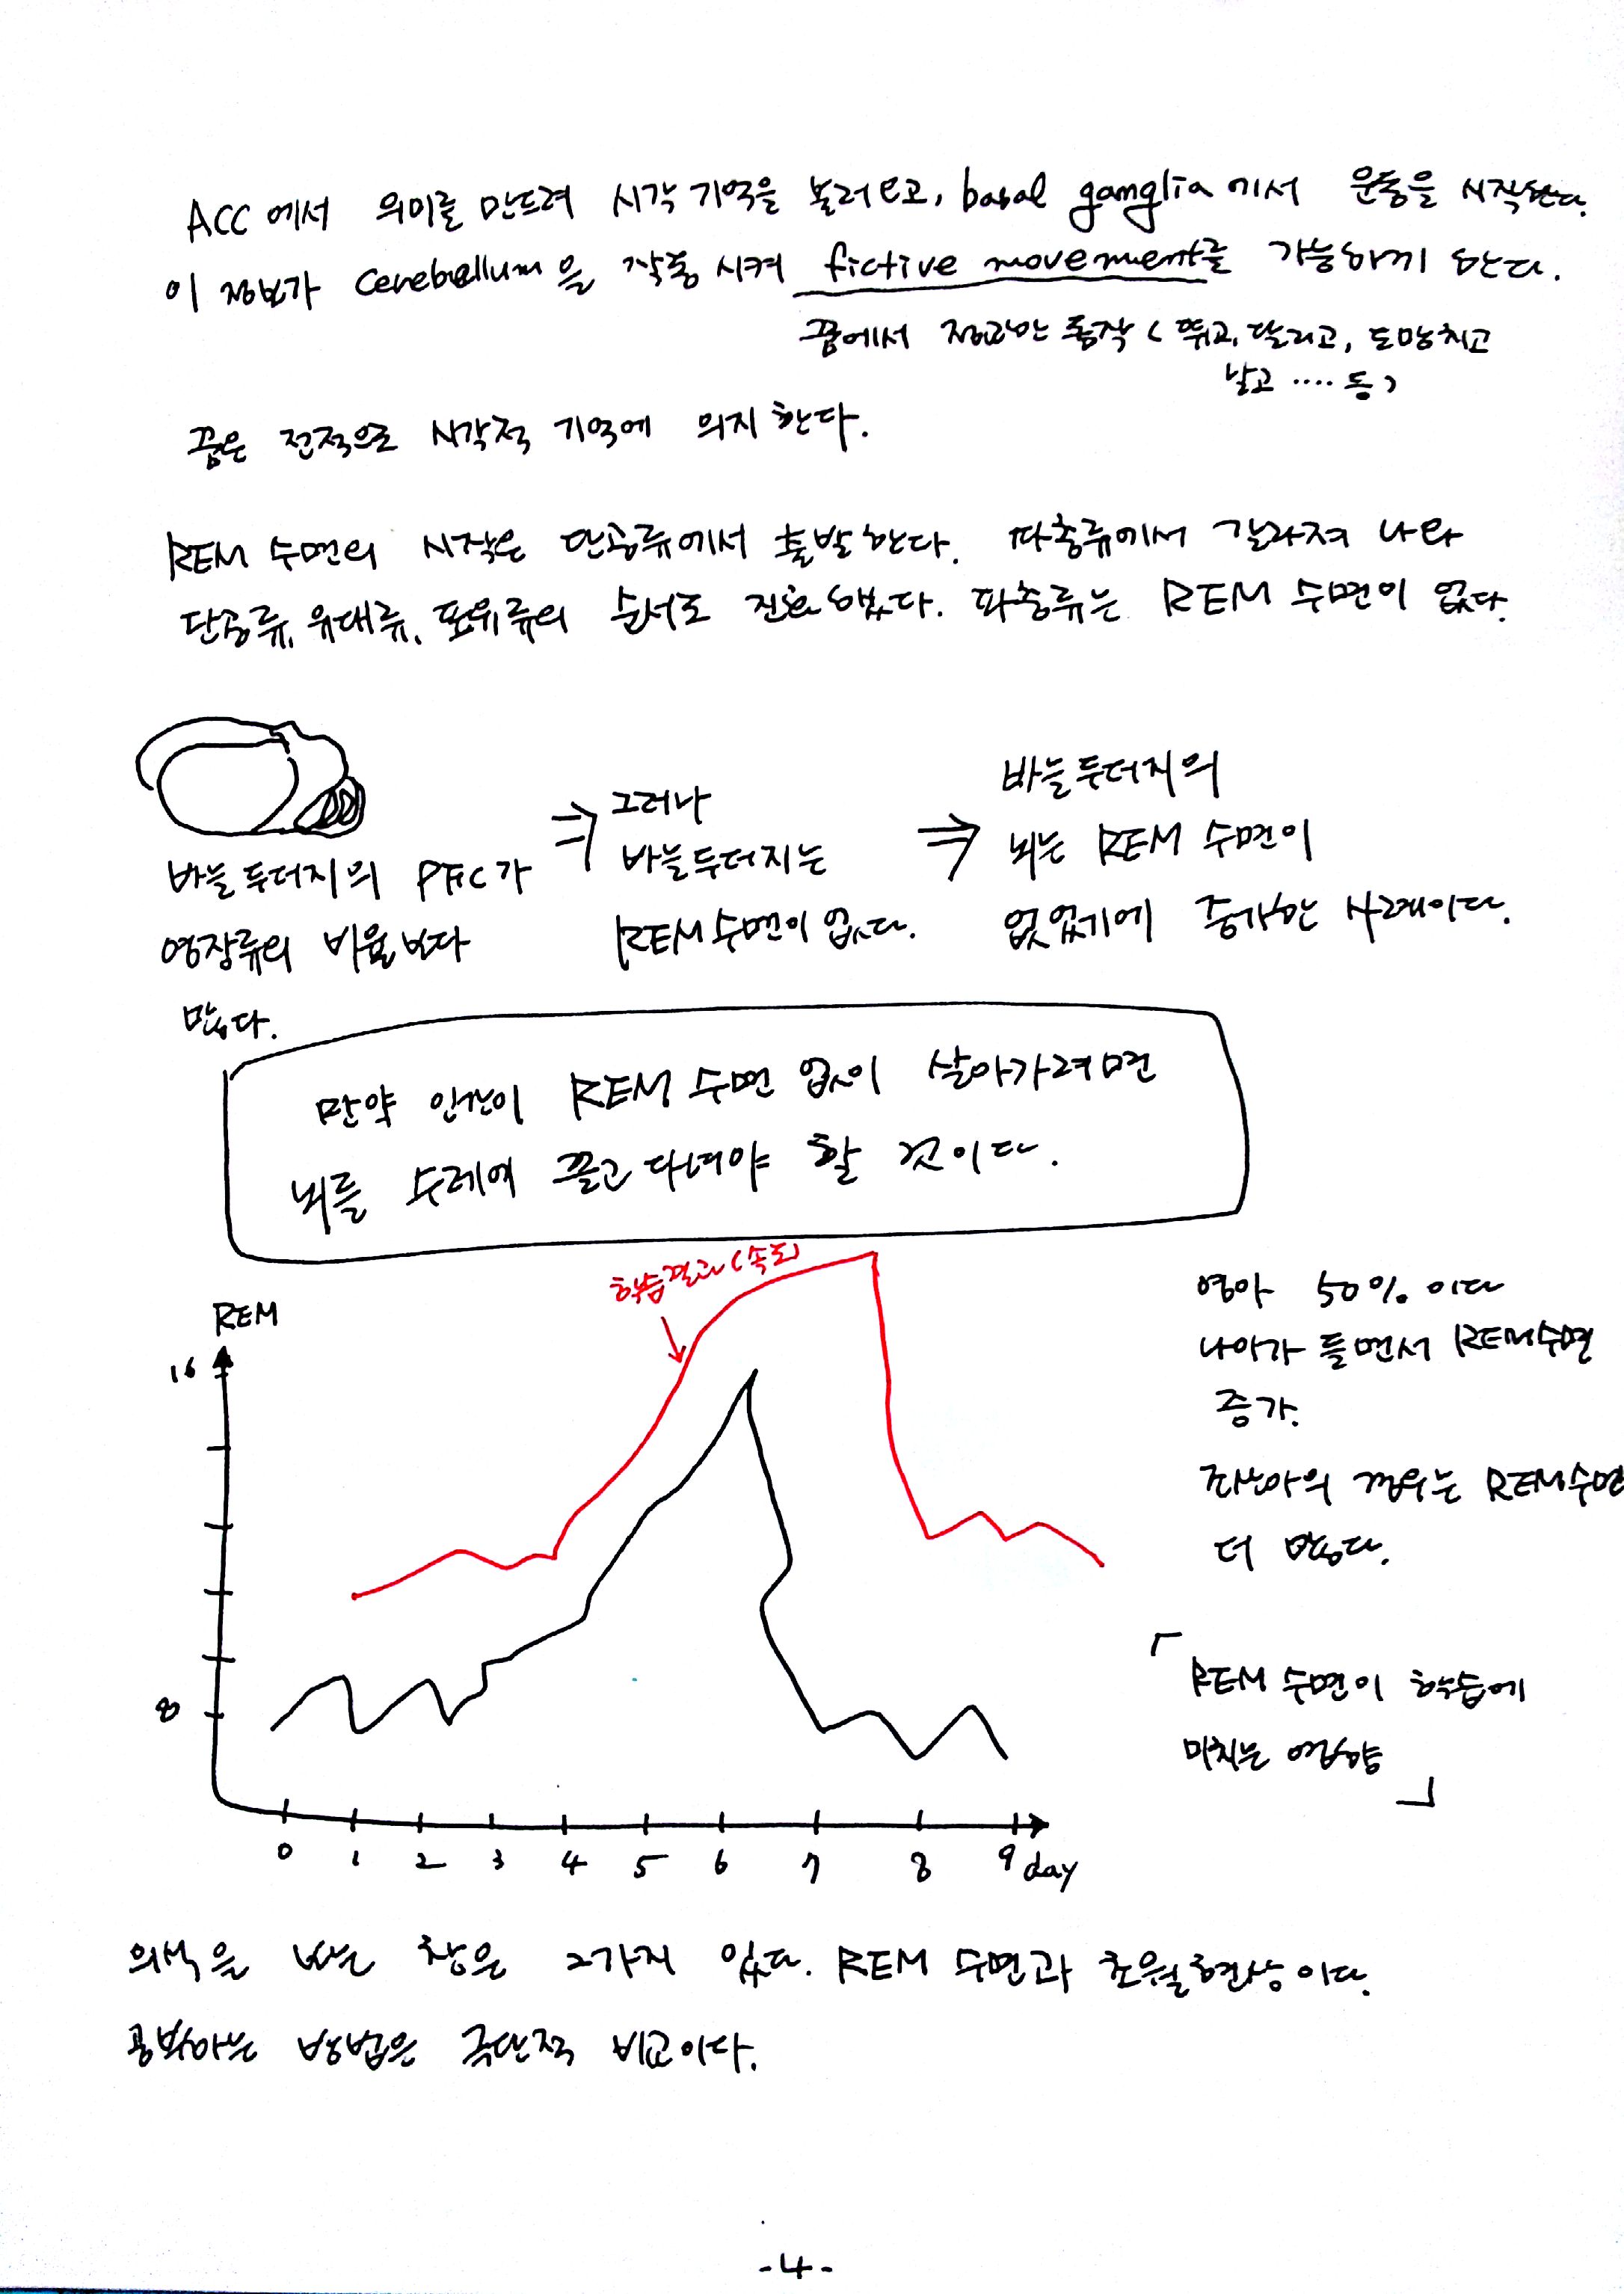 ACC에서 의미를 만드려 시각 기억을 불러오고, basal ganglia에서 운동을 시작한다.
이 정보가 cerebellum을 작동시켜 fictive movement를 가능하게 한다.
꿈에서 정교한 동작 ( 뛰고, 달리고, 도망치고
날고 .... 등)
꿈은 전적으로 시각적 기억에 의지한다.
REM 수면의 시작은 단공류에서 출발한다. 파충류에서 갈라져 나와
단공류, 유대류, 포유류의 순서로 진화했다. 파충류는 REM 수면이 없다.
바늘두더지의 PFC가
영장류의 비율보다
많다.
⇒ 그러나
바늘두더지는
REM수면이 없다.
⇒ 바늘두더지의
뇌는 REM 수면이
없었기에 증가한 사례이다.
만약 인간이 REM 수면 없이 살아가려면
뇌를 수레에 끌고 다녀야 할 것이다.
학습결과(속도)
REM
16
8
0 1 2 3 4 5 6 7 8 9 day
영아 50%이다
나이가 들면서 REM수면
증가.
조산아의 경우는 REM수면
더 많다.
「REM 수면이 학습에
미치는 영향」
의식을 보는 창은 2가지 있다. REM 수면과 초월현상이다.
공부하는 방법은 극단적 비교이다.
-4-